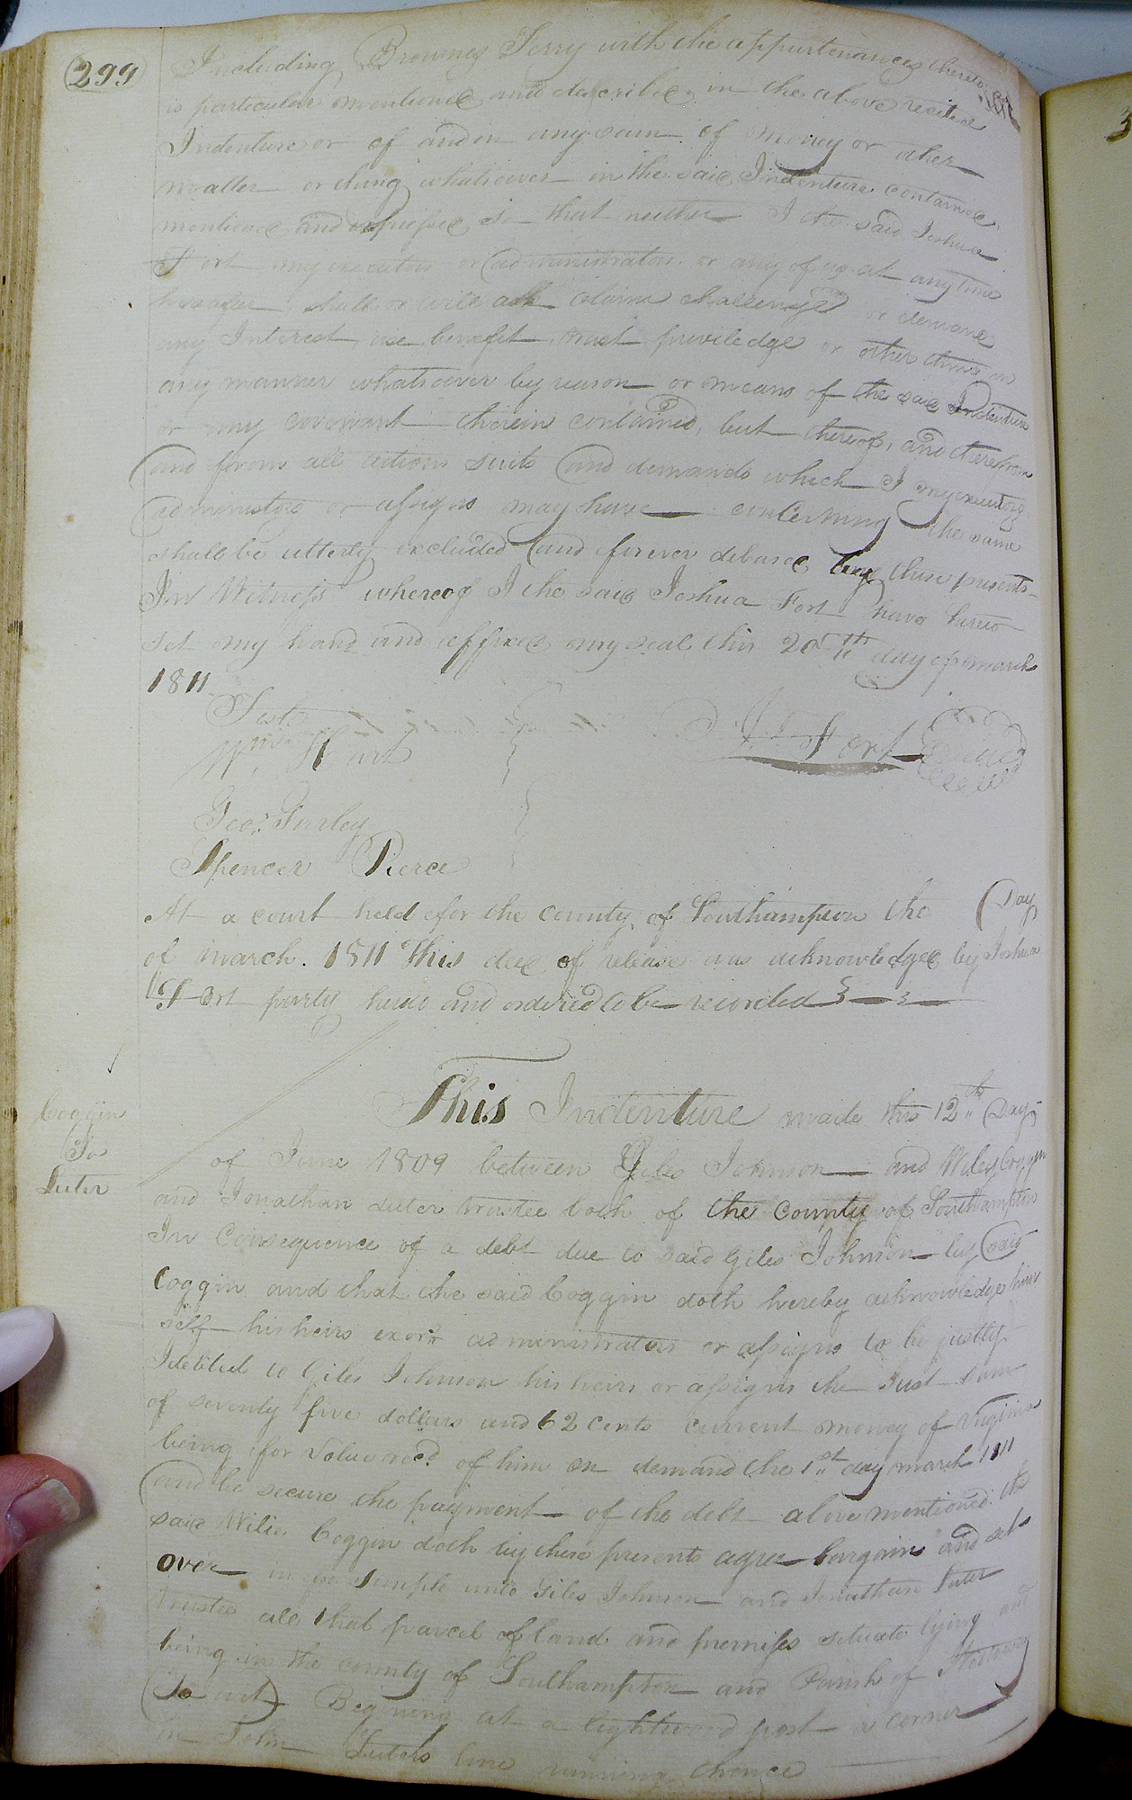 299
Including Browns Ferry with the appurtenances thereto
is particular mentioned and described in the above recited
Indenture or of and on any sum of money or other
matter or thing whatsoever in the said Indenture contained
mentioned and expressed so that neither I the said Joshua
Fort my executors or administrators or any of us at any time
hereafter shall or will ask claim challenge or demand
any Interest use benefit trust priviledge or other thing in
any manner whatsoever by reason or means of the said Indenture
or any covenant therein contained, but thereof, and therefrom
and from all actions suits and demands which I my executors
administrs or assigns may have concerning the same
shall be utterly excluded and forever debared by these presents
In Witness whereof I the said Joshua Fort have hereto
set my hand and affixed my seal this 20th day of march
1811
Test
Wm. Hart
J. Fort Seal
Geo: Gurley
Spencer Pierce
At a court held for the county of Southampton the Day
of march. 1811 This deed of release was acknowledged by Joshua
Fort party hereto and ordered to be recorded
Coggin
To
Luter
This Indenture made this 12th Day
of June 1809 between Giles Johnson and Wiley Coggin
and Jonathan Luter trustee both of the County of Southampton
In Consequence of a debt due to said Giles Johnson by said
Coggin and that the said Coggin doth hereby acknowledge him
self his heirs exors administrators or assigns to be justly
Indebted to Giles Johnson his heirs or assigns the Just sum
of seventy five dollars and 62 cents current money of Virginia
being for Value recd. of him on demand the 1st day march 1811
and to secure the payment of the debt above mentioned the
said Wilie Coggin doth by these presents agree bargain and set
over in fee simple unto Giles Johnson and Jonathan Luter
trustee all that parcel of land and premises situate lying and
being in the county of Southampton and Parish of Nottoway
(To wit) Begining at a lightwood post a corner
in John Luters line running thence